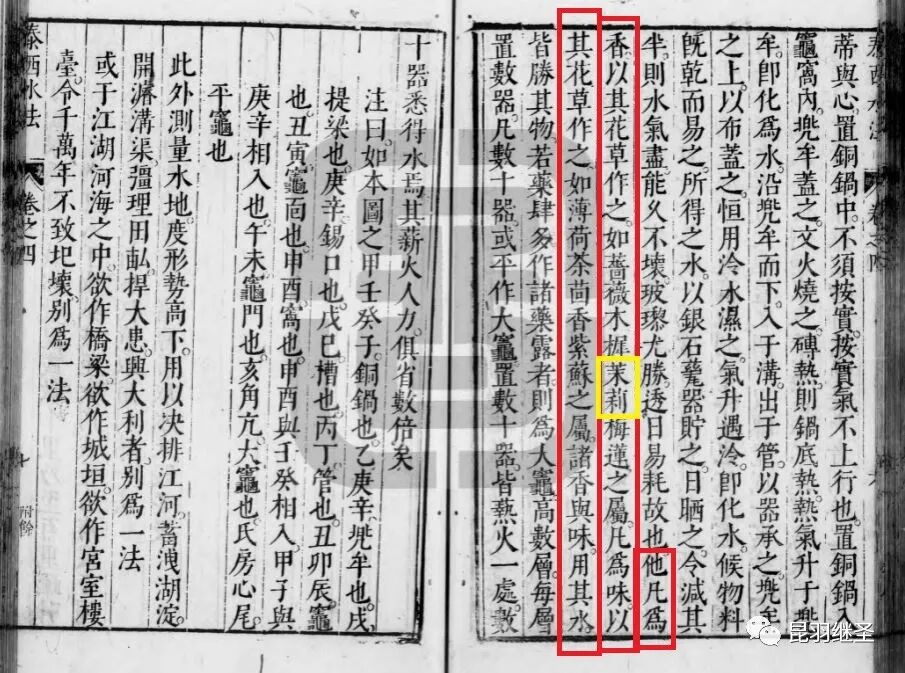 蒂與心置銅鍋中不須按實按實氣不上行也置銅鍋入
竈窩內兠牟蓋之文火燒之磚熱則鍋底熱熱氣升于兠
牟卽化爲水沿兠牟而下入于溝出于管以器承之兠牟
之上以布蓋之恒用冷水濕之氣升遇冷卽化水候物料
旣乾而易之所得之水以銀石甆器貯之日晒之令減其
半則水氣盡能久不壞玻瓈尤勝透日易耗故也他凡爲
香以其花草作之如薔薇木樨茉莉梅蓮之屬凡爲味以
其花草作之如薄荷茶茴香紫蘇之屬諸香與味用其水
皆勝其物若藥肆多作諸藥露者則爲大竈高數層每層
置數器凡數十器或平作大竈置數十器皆熱火一處數
十器悉得水焉其薪火人力俱省數倍矣
注曰如本圖之甲壬癸子銅鍋也乙庚辛兠牟也戊
提梁也庚辛錫口也戊巳槽也丙丁管也丑卯辰竈
也丑寅竈面也申酉窩也申酉與壬癸相入甲子與
庚辛相入也午未竈門也亥角亢大竈也氐房心尾
平竈也
此外測量水地度形勢高下用以决排江河蓄洩湖淀
開濬溝渠疆理田畝捍大患與大利者别爲一法
或于江湖河海之中欲作橋梁欲作城垣欲作宮室樓
臺令千萬年不致圮壞别爲一法
泰西水法 卷之四 七 附餘
昆羽继圣